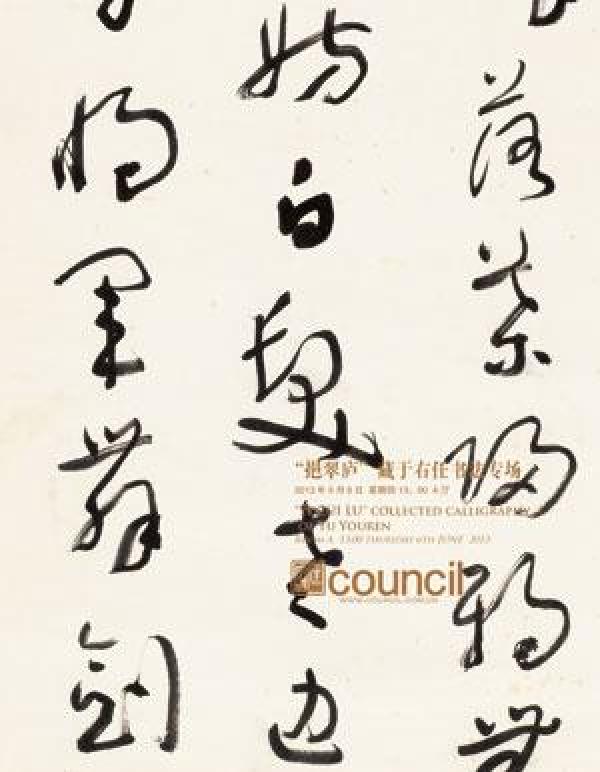 落葉歸鴉無
妨白髮老边
將軍舞劍
“挹翠庐”藏于右任书法专场
2013年6月6日 星期四 13：00 A厅
LU" COLLECTED CALLIGRAPHY
YU YOUREN
A 13:00 THURSDAY 6TH JUNE 2013
council